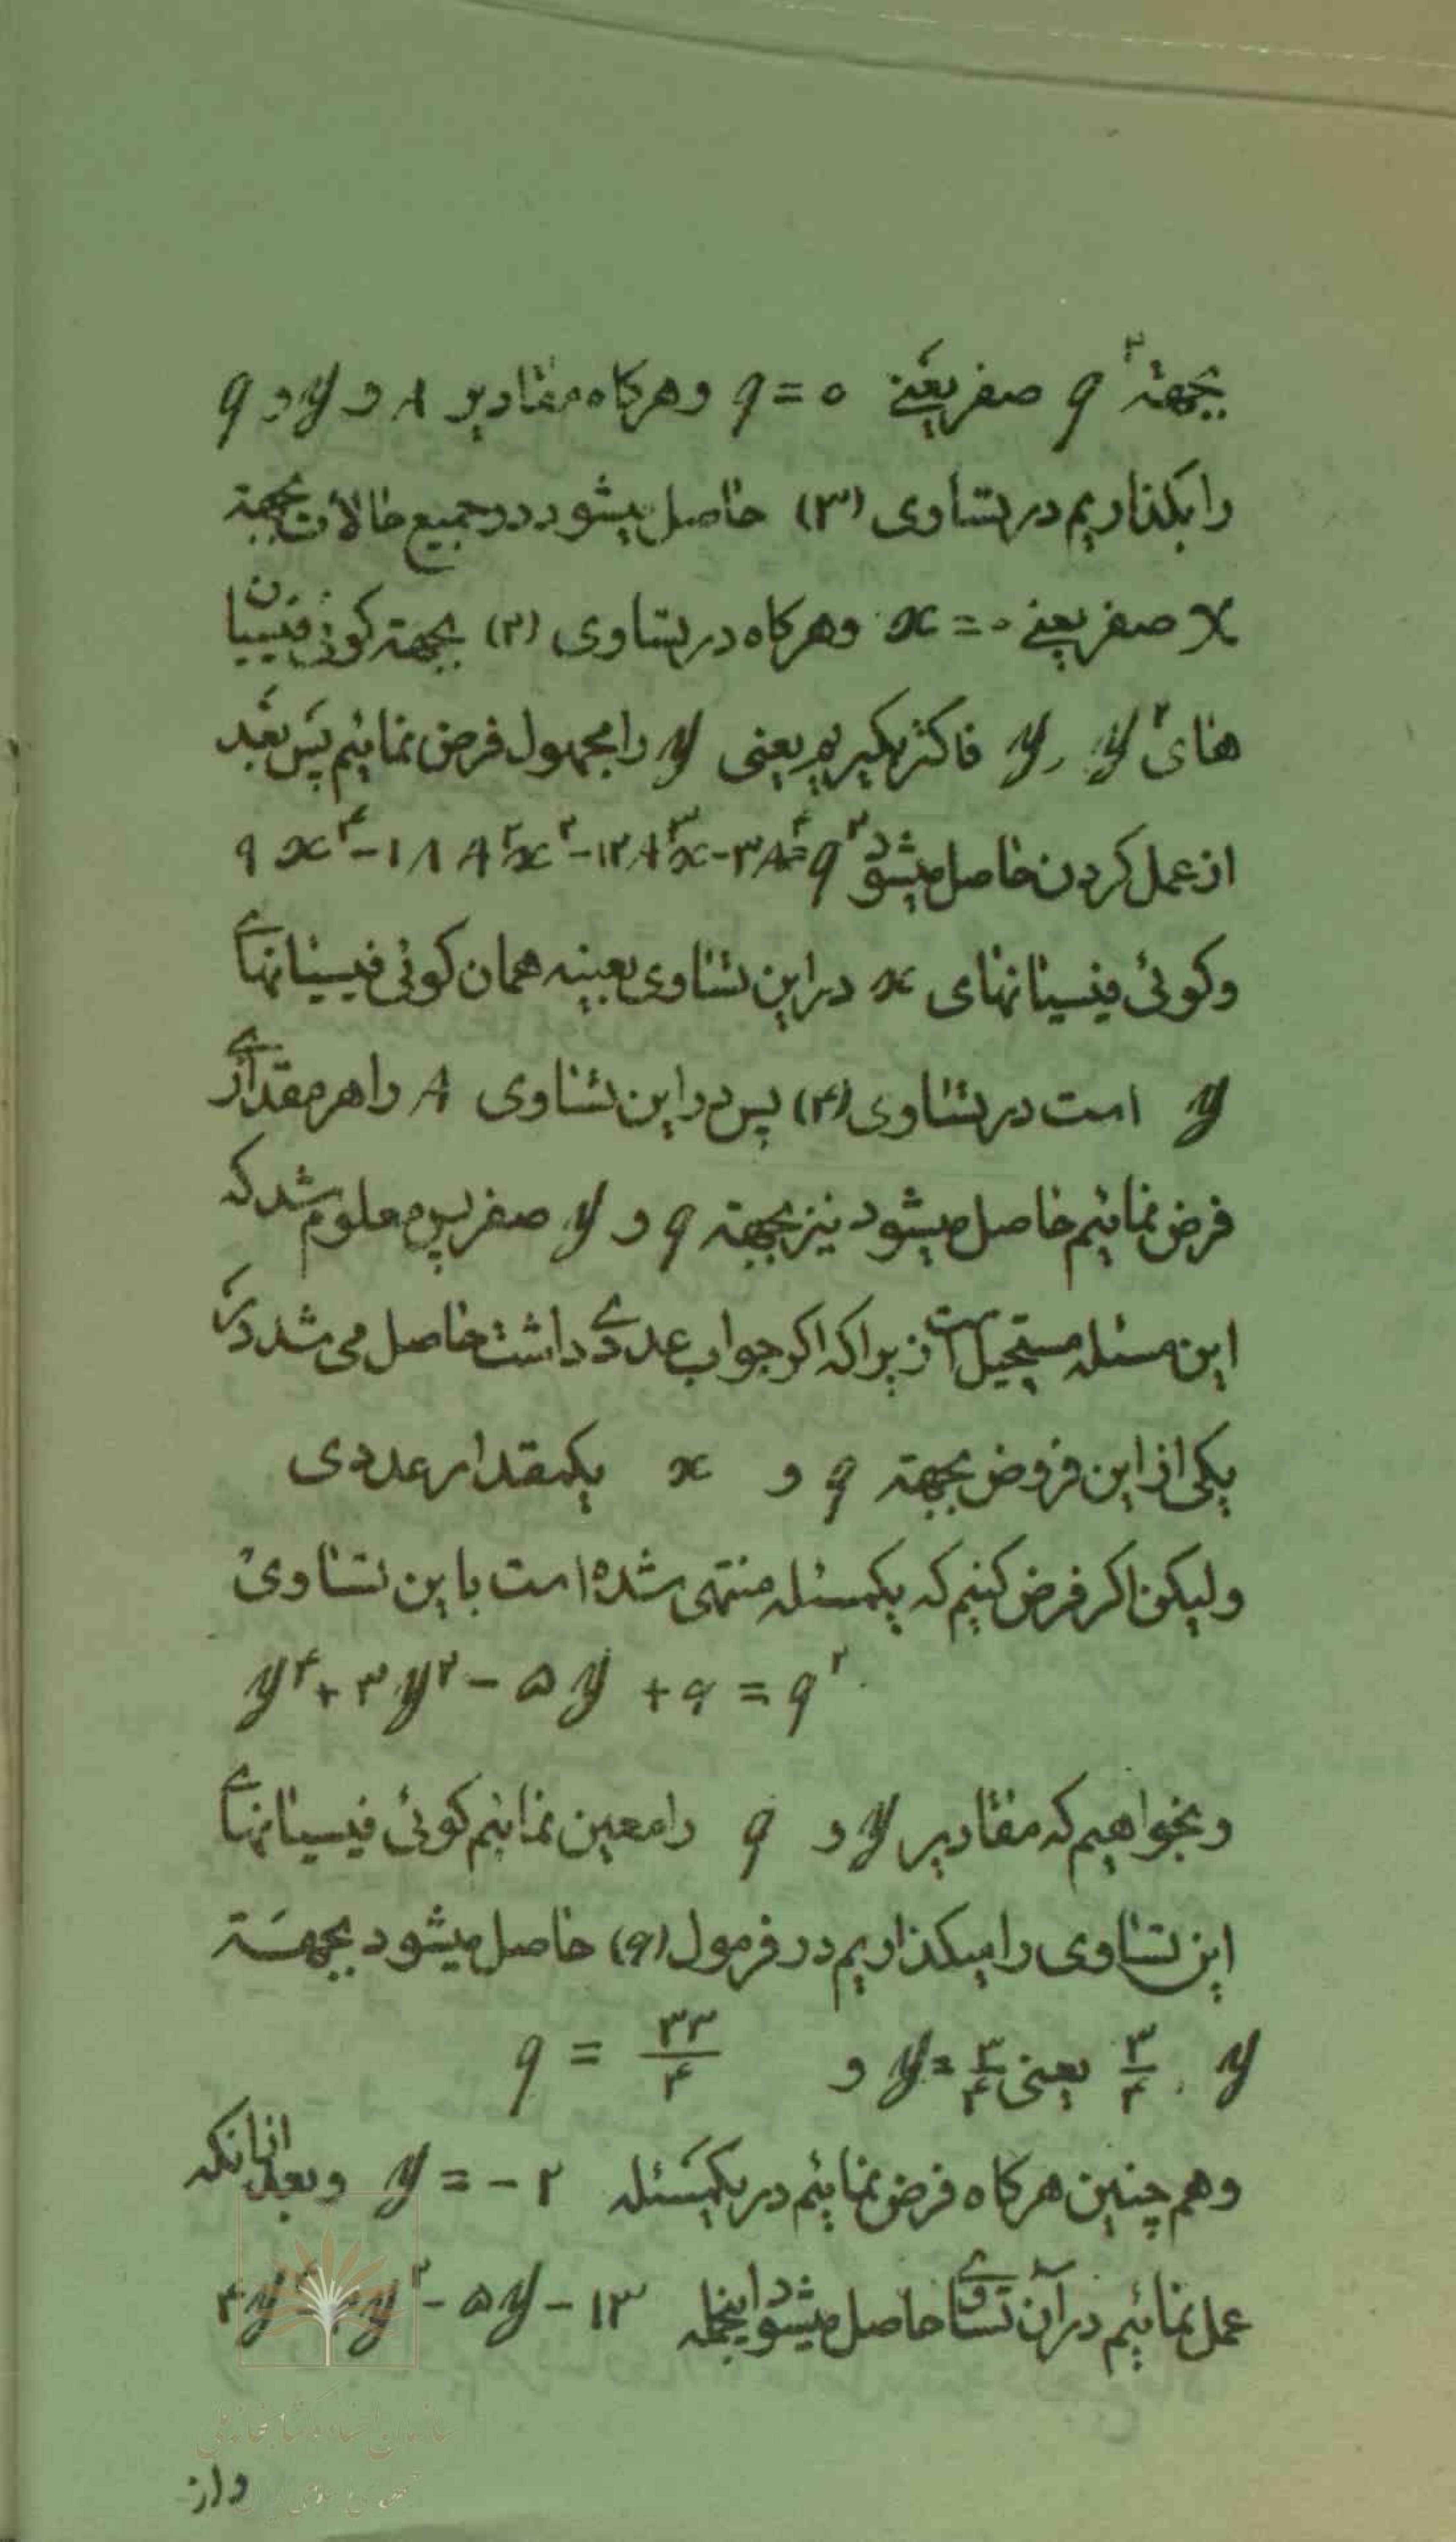 بجهتهٔ q² صفر یعنے q = ۰ وهرکاه مقادیر A و y و q
را بکذاریم در تساوی (۳) حاصل میشود در جمیع حالات بجهتهٔ
x صفر یعنے x = ۰ وهرکاه در تساوی (۲) بجهته کوئی فیسیان
های y² و y فاکتر بکیریم یعنی y را مجهول فرض نمائیم پس بعد
از عمل کردن حاصل میشود ۹x⁴ - ۱۸A²x² - ۱۲A³x - ۳A⁴ = q²
وکوئی فیسیانهای x در این تساوی بعینه همان کوئی فیسیانهاے
y است در تساوی (۴) پس در این تساوی A را هر مقدارے
فرض نمائیم حاصل میشود نیز بجهته q و y صفر پس معلوم شد که
این مسئله مستحیل است زیرا که اکر جواب عددے داشت حاصل می شد در
یکی از این فروض بجهته q و x یکمقدار عددی
ولیکن اکر فرض کنیم که یکمسئله منتهی شده است باین تساوی
y⁴ + ۳y² - ۵y + ۹ = q²
و بخواهیم که مقادیر y و q را معین نمائیم کوئی فیسیانهاے
این تساوی را میکذاریم در فرمول (۹) حاصل میشود بجهته
y ۳/۴ یعنی y = ۳/۴ و q = ۳۳/۴
وهم چنین هرکاه فرض نمائیم در یکمسئله y = - ۲ و بعد از آنکه
عمل نمائیم در آن تساوے حاصل میشود اینجمله - ۵y - ۱۳
واز
سازمان اسناد و کتابخانه ملی
جمهوری اسلامی ایران